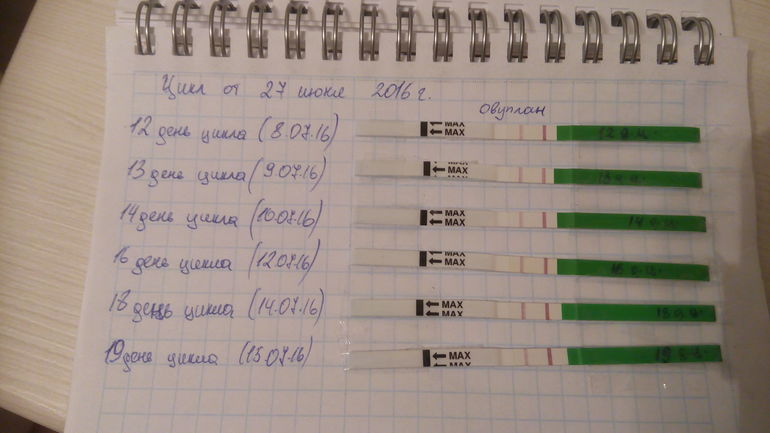 Цикл от 27 июня 2016 г.
овуплан
12 день цикла (8.07.16) MAX MAX 12 д.ц.
13 день цикла (9.07.16) MAX MAX 13 д.ц.
14 день цикла (10.07.16) MAX MAX 14 д.ц.
16 день цикла (12.07.16) MAX MAX 16 д.ц.
18 день цикла (14.07.16) MAX MAX 18 д.ц.
19 день цикла (15.07.16) MAX MAX 19 д.ц.